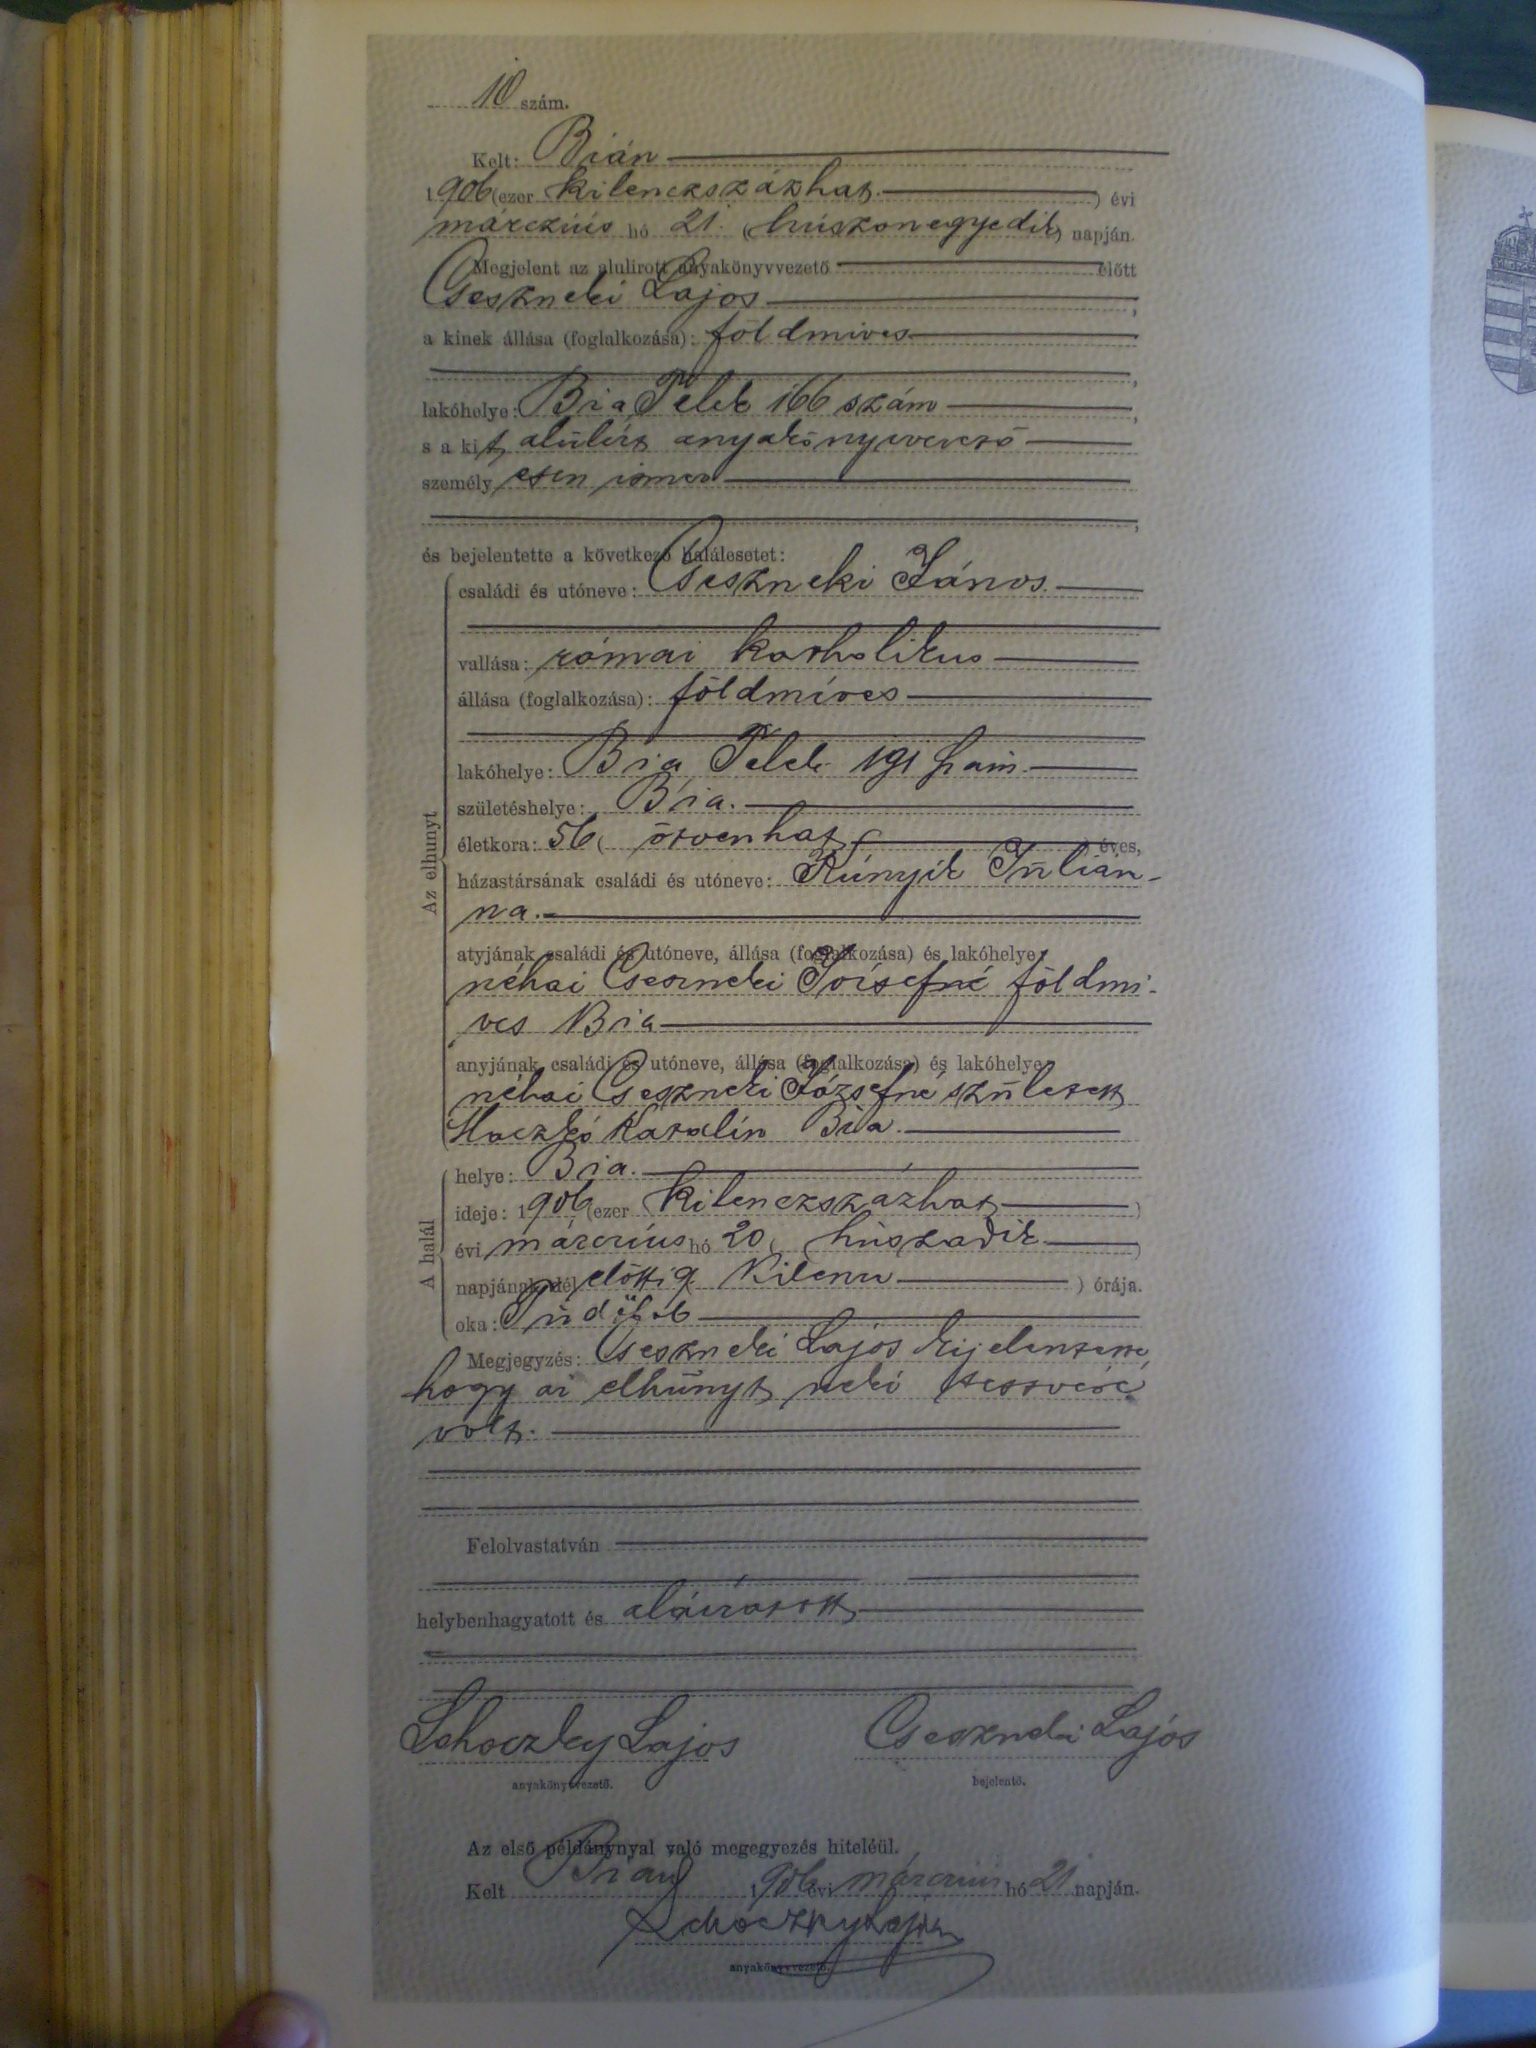 10 szám.
Kelt: Bián
1906 (ezer kilenczszázhat) évi
márczius hó 21. (húszonegyedik) napján.
Megjelent az alulirott anyakönyvvezető előtt
Cseszneki Lajos,
a kinek állása (foglalkozása): földmives
,
lakóhelye: Bia, Telek 166 szám,
s a kit alulírt anyakönyvvezető
személyesen ismer
,
és bejelentette a következő halálesetet:
Az elhunyt
családi és utóneve: Cseszneki János.
vallása: római katholikus
állása (foglalkozása): földmíves
lakóhelye: Bia, Telek 191 szám.
születéshelye: Bia.
életkora: 56 (ötvenhat) éves,
házastársának családi és utóneve: Kúnyik Julián-
na.
atyjának családi és utóneve, állása (foglalkozása) és lakóhelye:
néhai Csesneki Józsefné földmi-
ves Bia
anyjának családi és utóneve, állása (foglalkozása) és lakóhelye:
néhai Csesneki Józsefné született
Katalin Bia.
A halál
helye: Bia.
ideje: 1906 (ezer kilenczszázhat)
évi márczius hó 20 (húszadik)
napjának dél előtti 9 (kilencz) órája.
oka:
Megjegyzés: Cseszneki Lajos kijelentette,
hogy az elhúnyt neki testvére
volt.
Felolvastatván
helybenhagyatott és aláíratott
Schoczky Lajos Cseszneki Lajos
anyakönyvvezető. bejelentő.
Az első példánynyal való megegyezés hiteléül.
Kelt Bián 1906 évi márczius hó 21 napján.
Schoczky Lajos
anyakönyvvezető.